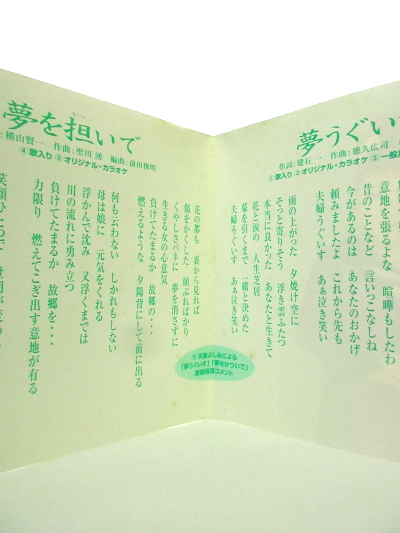 夢うぐい
作詞:建石一 作曲:徳久広司
①歌入り ②オリジナル・カラオケ ③一般
意地を張るよな 喧嘩もしたわ
昔のことなど 言いっこなしね
今があるのは あなたのおかげ
頼みましたよ これから先も
夫婦うぐいす あぁ泣き笑い
雨の上がった 夕焼け空に
そっと寄りそう 浮き雲ふたつ
本当に良かった あなたと生きて
花と涙の 人生芝居
幕を引くまで 一緒と決めた
夫婦うぐいす あぁ泣き笑い
夢を担いで
横山賢一 作曲:聖川湧 編曲:前田俊明
④歌入り ⑤オリジナル・カラオケ
花の都も 裏から見れば
傷をかくした 顔ぶればかり
くやしさバネに 夢を消さずに
生きる女の心意気
負けてたまるか 故郷の・・・
燃えるような 夕陽背にして前に出る
何も云わない しかれもしない
母は娘に 元気をくれる
浮かんで沈み 又浮くまでは
川の流れに勇み立つ
負けてたまるか 故郷を・・・
力限り 燃えてこぎ出す意地が有る
⑥天童よしみによる
「夢うぐいす」「夢をかついで」
歌唱指導コメント